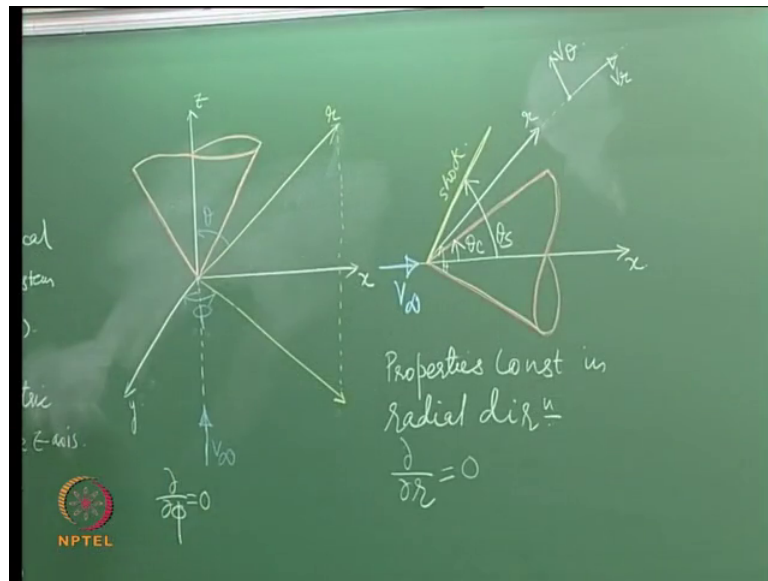 cal
stem
).
tric
z-axis.
z
r
θ
x
φ
y
V∞
∂/∂φ = 0
Vθ
Vr
r
shock
θc
θs
x
V∞
Properties Const in
radial dirⁿ
∂/∂r = 0
NPTEL